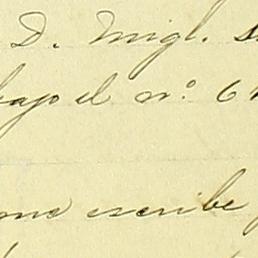 D. Migl.
bajo el n.º 6
me escribe